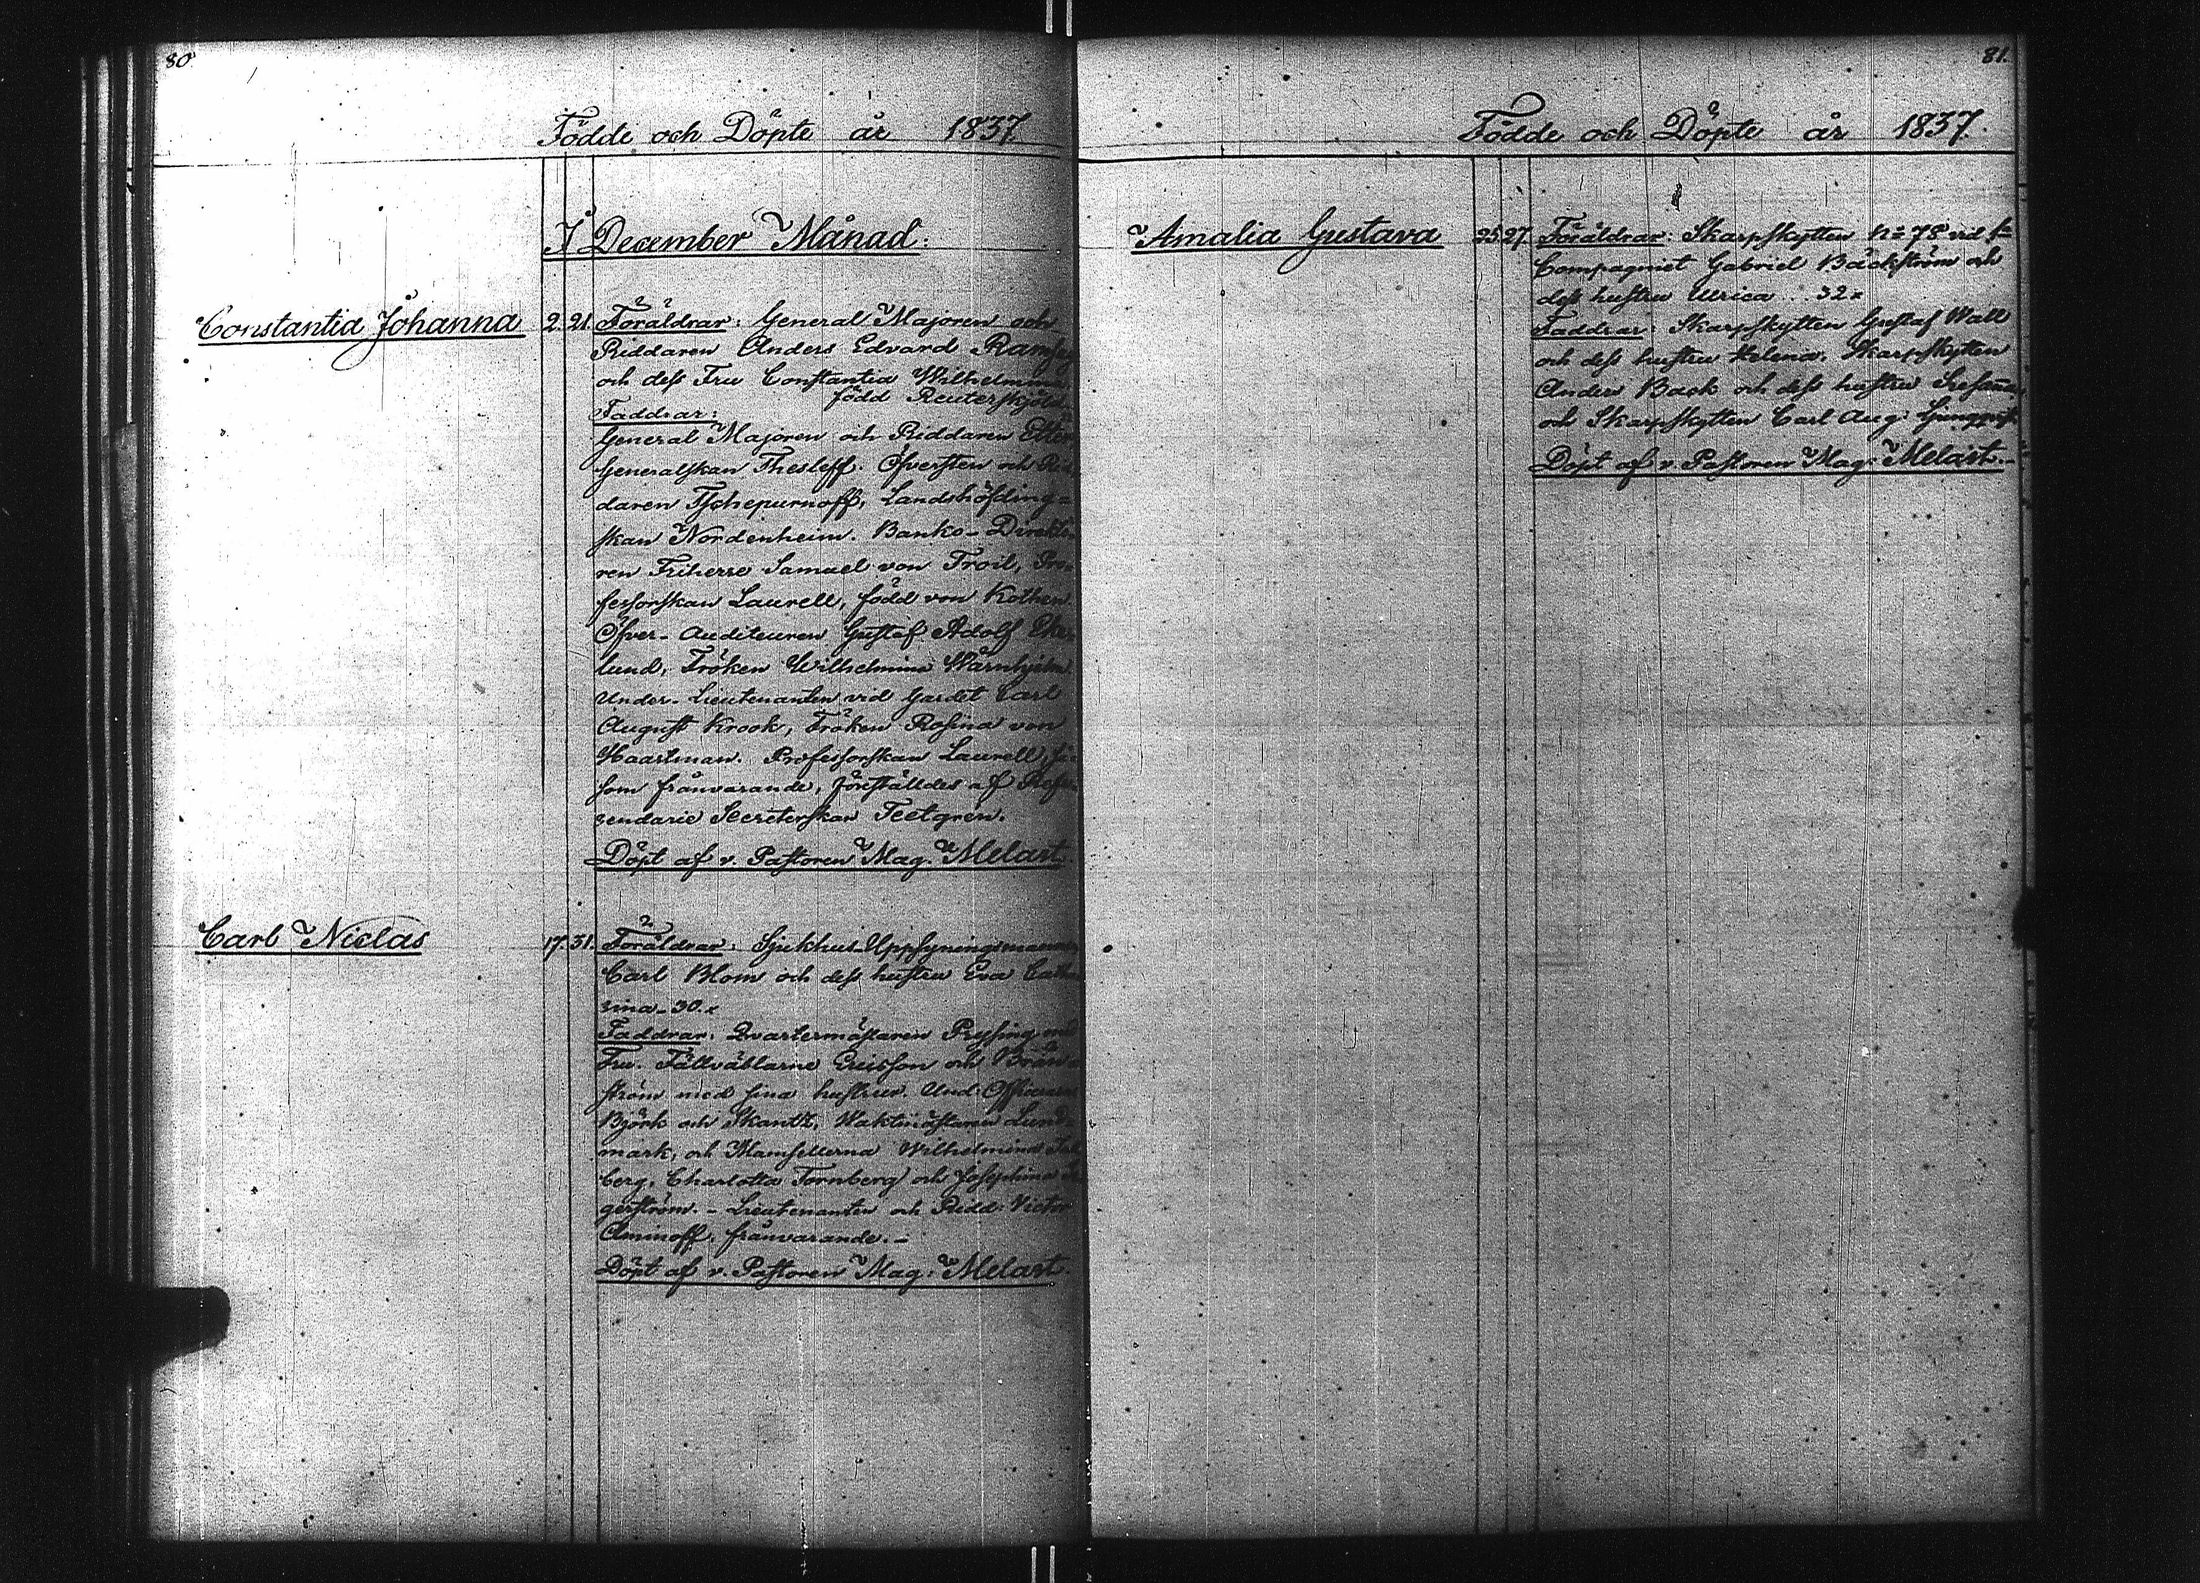 80
Födde och Döpte år 1837
I December Månad:
Constantia Johanna 2. 21. Föräldrar: General Majoren och
Riddaren Anders Edvard Ramsay
och dess Fru Constantia Wilhelmina
född Reuterskjöld
Faddrar:
General Majoren och Riddaren Etter
Generalskan Thesleff. Öfversten och Rid-
daren Tschepurnoff, Landshöfding-
skan Nordenheim. Banko-Direktö-
ren Friherre Samuel von Troil, Pro-
fessorskan Laurell, född von Kothen.
Öfver-Auditeuren Gustaf Adolf Eke-
lund, Fröken Wilhelmina Wärnhjelm.
Under-Lieutenanten vid Gardet Carl
August Krook, Fröken Rosina von
Haartman. Professorskan Laurell, så
som frånvarande, föreställdes af Refe-
rendarie Secreterskan Teetgren.
Döpt af v. Pastoren Mag. Melart
Carl Niclas 17. 31. Föräldrar: Sjukhus-Uppsyningsmannen
Carl Blom och dess hustru Eva Catha
rina - 30.x
Faddrar: Qvartermästaren Pryssing med
Fru. Fältväblarne Ericsson och Brän
ström med sina hustrur. Und: Officerarne
Björk och Skantz, Waktmästaren Lund
mark, och Mamsellerna Wilhelmina
berg, Charlotta Tornberg och Josephina
gerström. - Lieutenanten och Ridd: Victor
Aminoff, frånvarande. -
Döpt af v. Pastoren Mag: Melart.
81.
Födde och Döpte år 1837.
Amalia Gustava 25. 27. Föräldrar: Skarpskytten No 78 vid
Compagniet Gabriel Bäckström och
dess hustru Ulrica .. 32x
Faddrar: Skarpskytten Gustaf Wall
och dess hustru Helena. Skarpskytten
Anders Back och dess hustru
och Skarpskytten Carl Aug: Ljungqvist
Döpt af v. Pastoren Mag: Melart. -